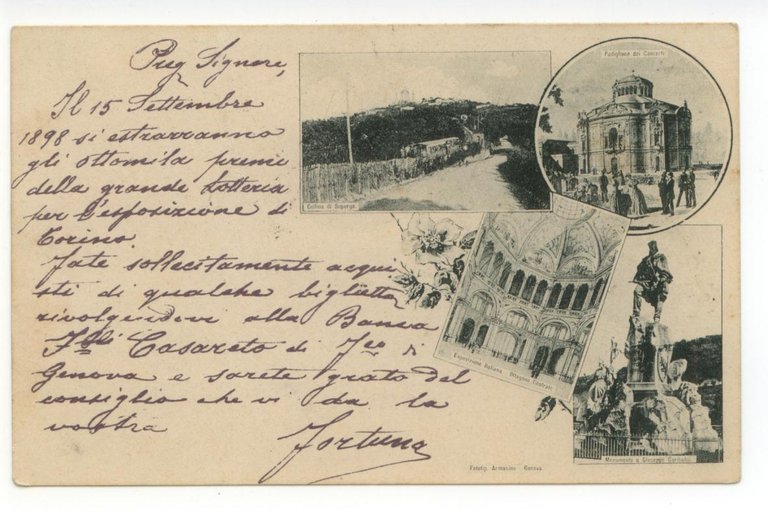 Preg Signore,
Il 15 Settembre
1898 si estrarranno
gli ottomila premi
della grande Lotteria
per l'esposizione di
Torino.
Fate sollecitamente acqui
sti di qualche biglietto
rivolgendovi alla Banca
F.lli Casareto di F.co di
Genova e sarete grato del
consiglio che vi da la
vostra
Fortuna
Collina di Superga
Padiglione dei Concerti
Esposizione Italiana Ottagono Centrale
Monumento a Giuseppe Garibaldi
Fototip. Armanino Genova